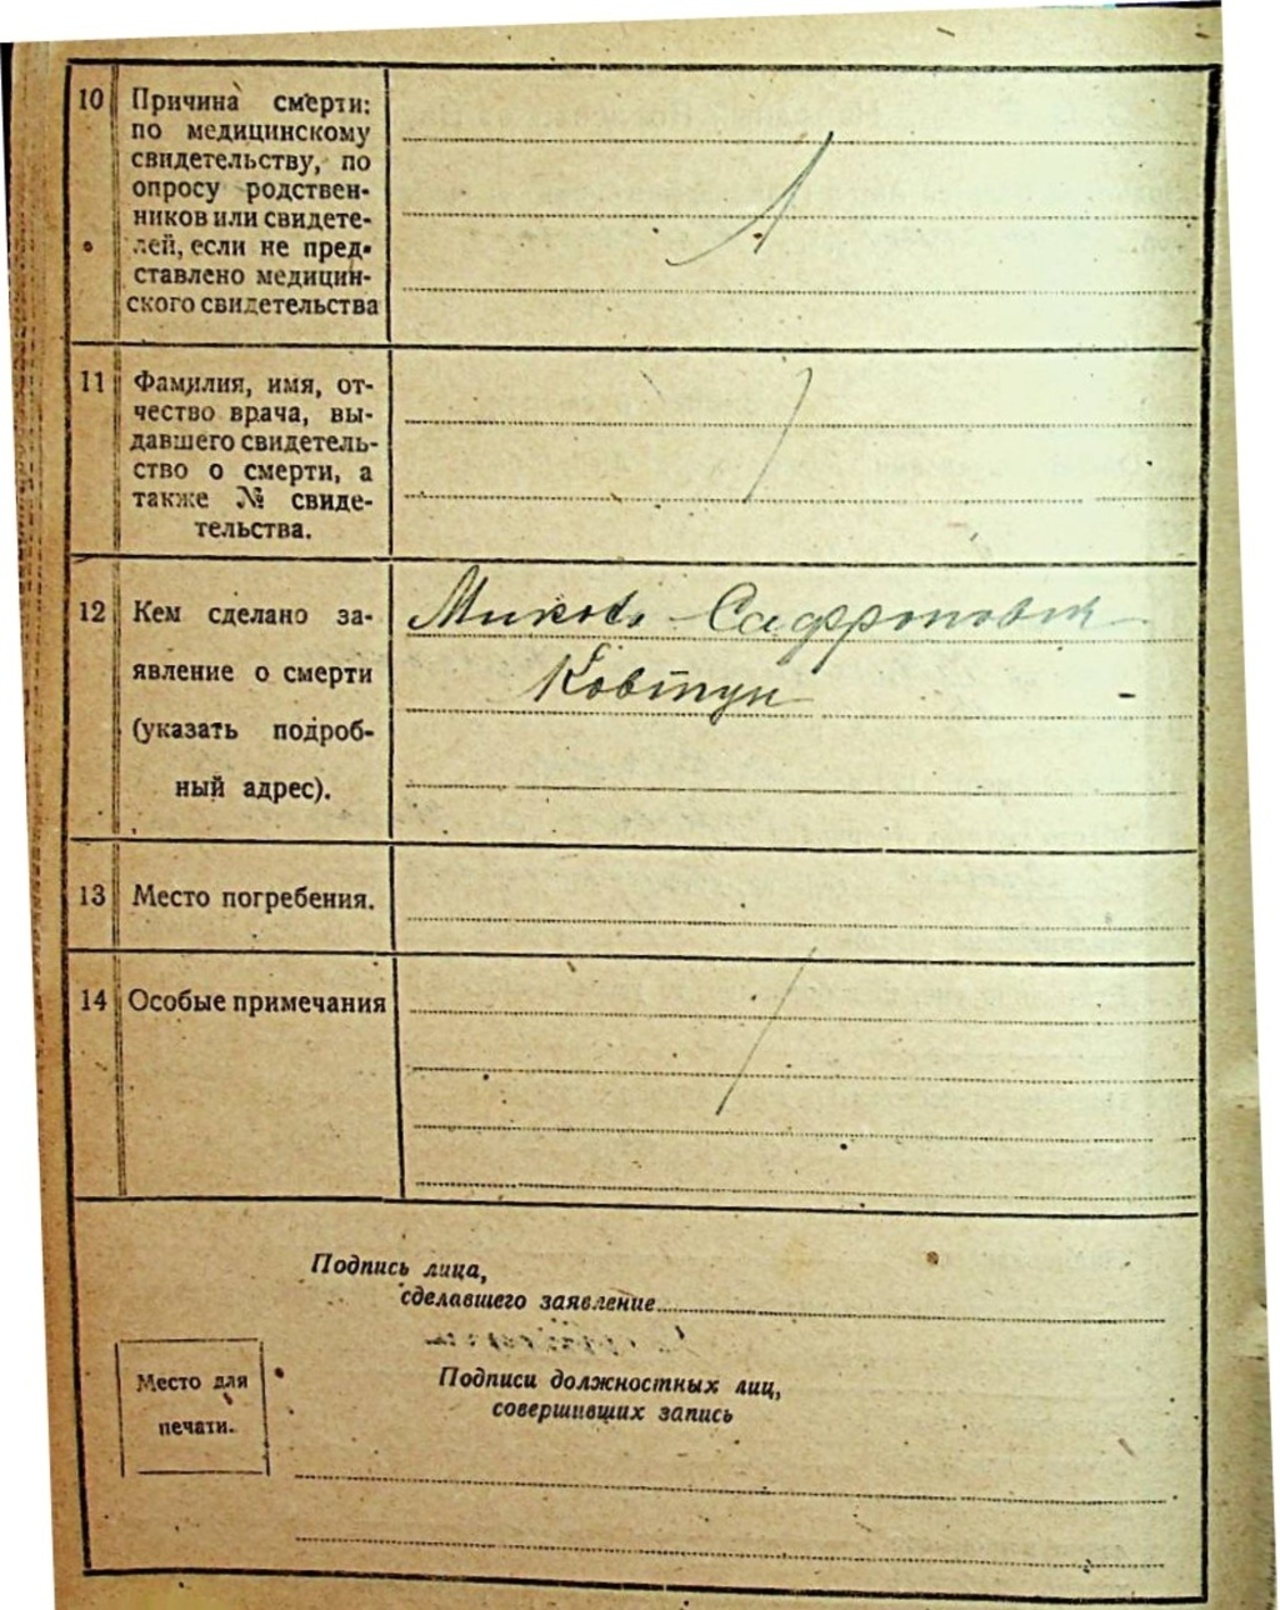 10 Причина смерти:
по медицинскому
свидетельству, по
опросу родствен-
ников или свидете-
лей, если не пред-
ставлено медицин-
ского свидетельства
11 Фамилия, имя, от-
чество врача, вы-
давшего свидетель-
ство о смерти, а
также № свиде-
тельства.
12 Кем сделано за-
явление о смерти
(указать подроб-
ный адрес).
Сафронович
Ковтун
13 Место погребения.
14 Особые примечания
Подпись лица,
сделавшего заявление
Место для
печати.
Подписи должностных лиц,
совершивших запись